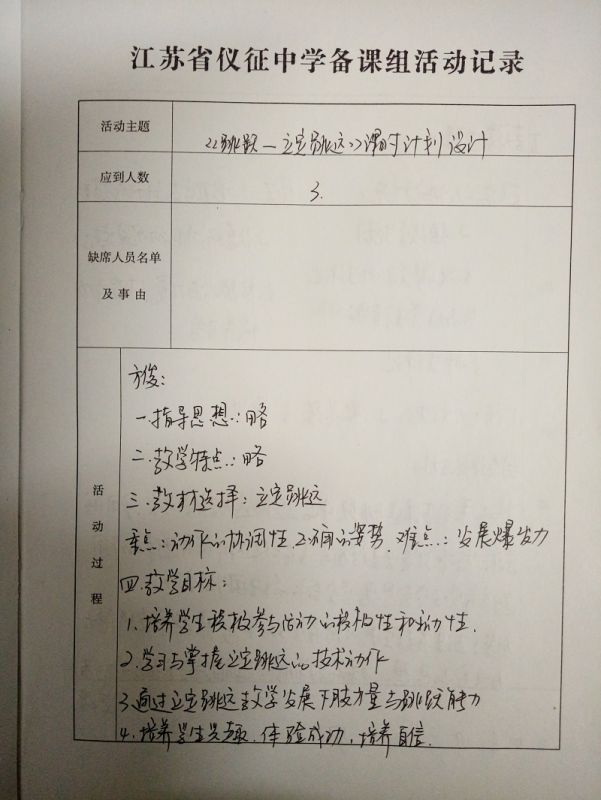 江苏省仪征中学备课组活动记录
活动主题
《跳跃—立定跳远》课时计划设计
应到人数
3.
缺席人员名单
及事由
活动过程
方俊:
一.指导思想:略
二.教学特点:略
三.教材选择:立定跳远
重点:动作的协调性,正确的姿势.难点:发展爆发力
四.教学目标:
1.培养学生积极参与活动的积极性和主动性.
2.学习与掌握立定跳远的技术动作
3.通过立定跳远教学发展下肢力量与跳跃能力
4.培养学生兴趣.体验成功,培养自信.